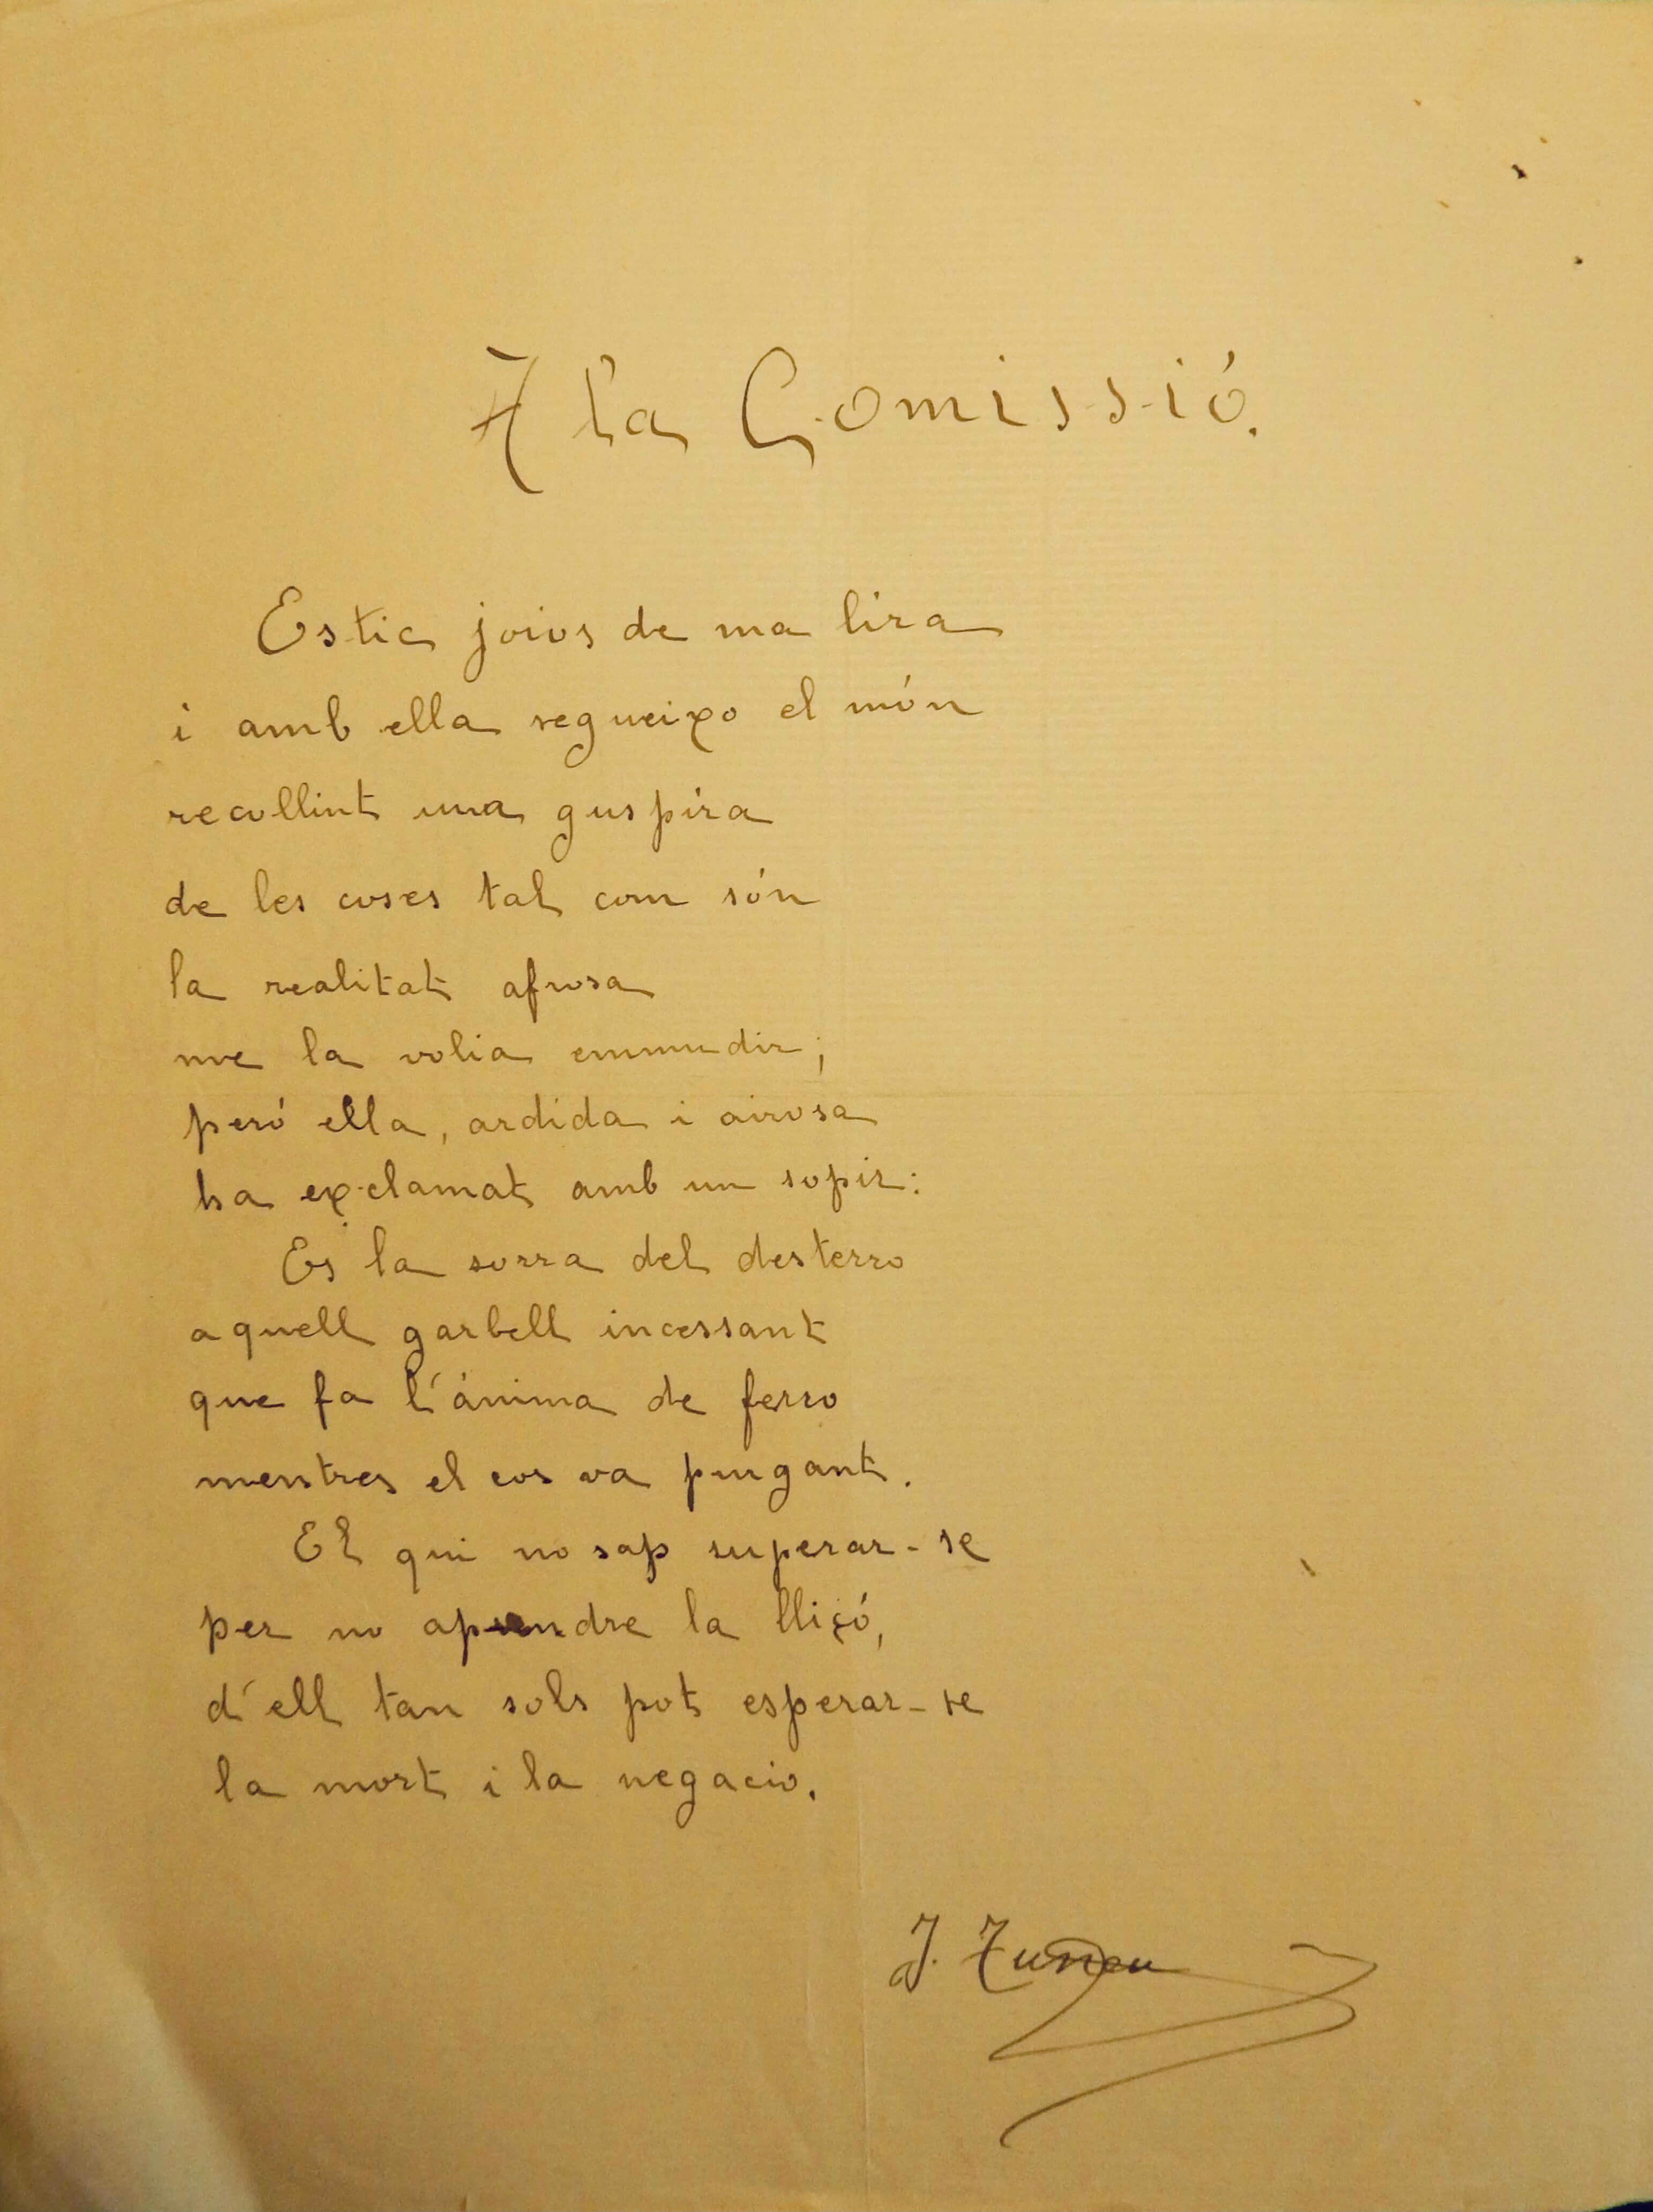 A la Comissió.
Estic joios de ma lira
i amb ella segueixo el món
recollint una guspira
de les coses tal com són
la realitat afrosa
me la volia emmudir;
peró ella, ardida i airosa
ha exclamat amb un sopir:
Es la sorra del desterro
aquell garbell incessant
que fa l'ánima de ferro
mentres el cos va purgant.
El qui no sap superar-se
per no apendre la lliçó,
d'ell tan sols pot esperar-se
la mort i la negacio.
J.